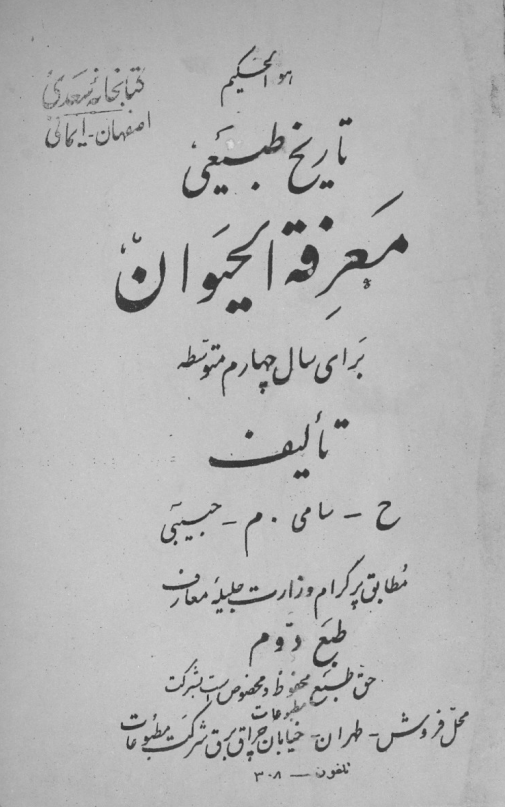 هو الحکیم
کتابخانهٔ سعدی
اصفهان -
تاریخ طبیعی
معرفة الحیوان
برای سال چهارم متوسطه
تألیف
ح - سامی . م - حبیبی
مطابق پرگرام وزارت جلیلهٔ معارف
طبع دوم
حق طبع محفوظ و مخصوص است بشرکت
مطبوعات
محل فروش - طهران - خیابان چراق برق شرکت مطبوعات
تلفون — ۳۰۸